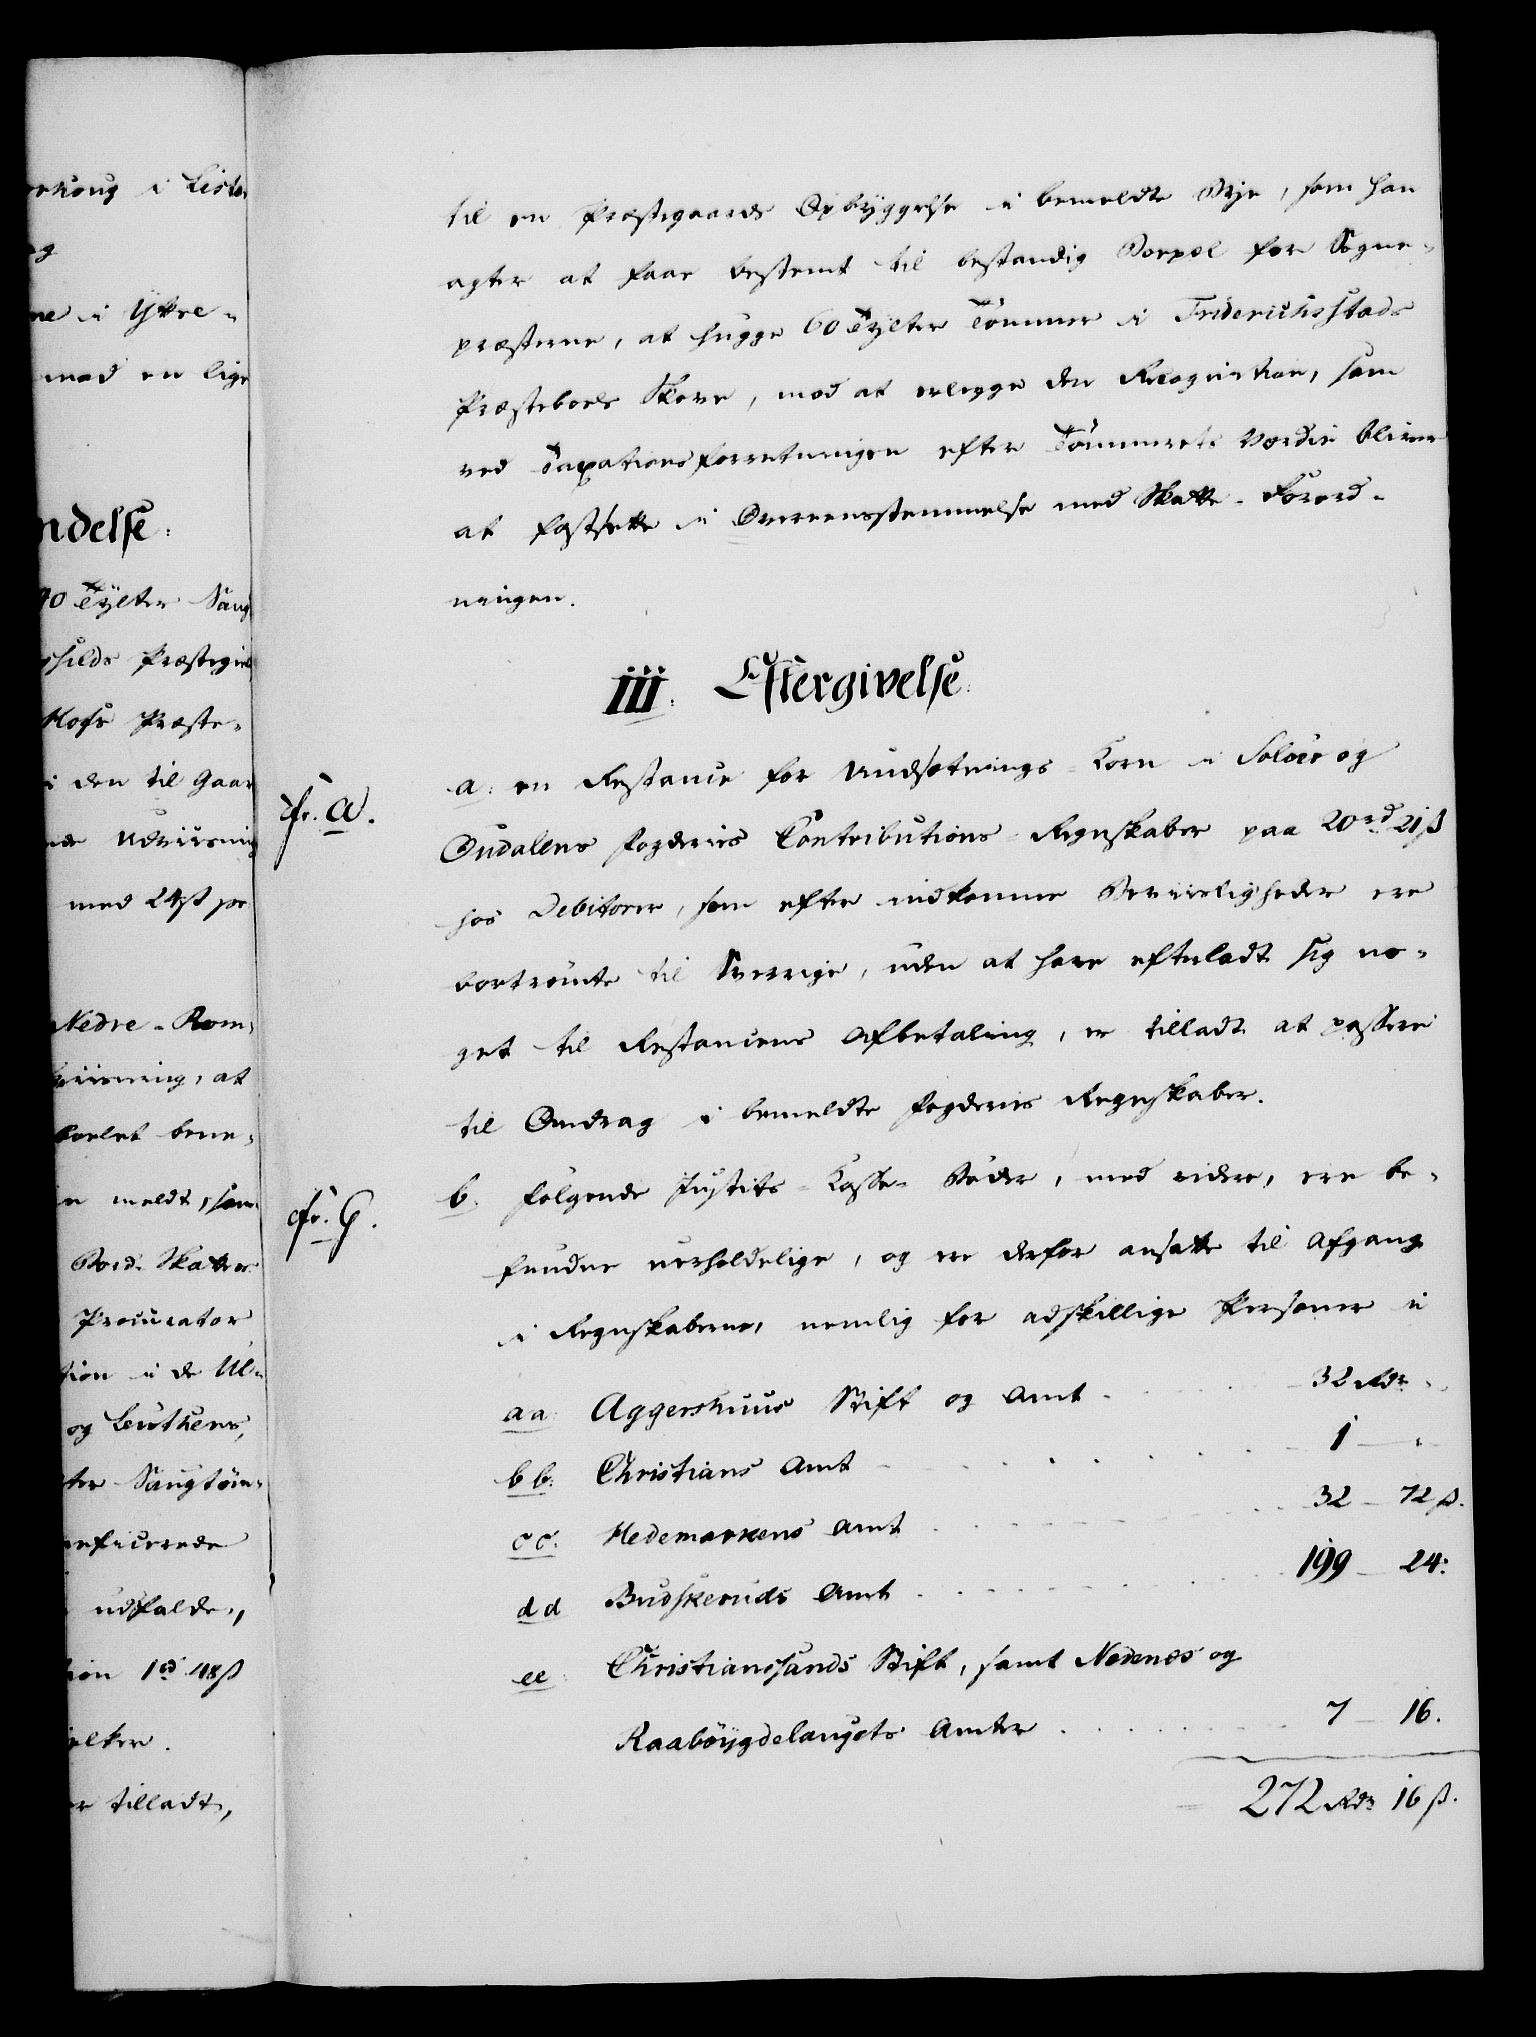 orkoug i Lister
og
ne i Ytre-
mod en lige
ndelse:
40 Tylter Saug
shilds Præstegield
Hofs Præste-
i den til Gaar
nde Udviisning
med 24 ß pr
Nedre-Rom-
viisning, at
boelet bene-
meldt, som
Bord-Skatter
Procurator
tion i de Ul-
og Leuthens,
ter Saugtöm-
neficerede
udfalde,
ion 1 rd 48 ß
elker.
er tilladt,
til en Præstegaards Opbyggelse i bemeldte Bye, som han
agter at faae bestemt til bestandig Boepæl for Sogne-
præsterne, at hugge 60 Tylter Tömmer i Friderichsstads
Præsteboels Skove, mod at erlegge den Recognition, som
ved Taxationsforretningen efter Tömmerets Værdie bliver
at fastsette i Overeensstemmelse med Skatte-Forord-
ningen.
III. Eftergivelse:
cfr. A.
a: en Restance for Undsetnings-Korn i Soloer og
Oudalens Fogderies Contributions-Regnskaber paa 20 rd 21 ß
hos Debitorer, som efter indkomne Beviisligheder ere
bortrömte til Sverrige, uden at have efterladt sig no-
get til Restancens Afbetaling, er tilladt at passere
til Omdrag i bemeldte Fogderies Regnskaber.
cfr. G.
b. følgende Justits-Casse-Böder, med videre, ere be-
fundne uerholdelige, og ere derfor ansatte til Afgang
i Regnskaberne, nemlig for adskillige Personer i
aa: Aggershuus Stift og Amt - 32 Rdr "
bb: Christians Amt - 1 - "
cc: Hedemarkens Amt - 32 - 72 ß.
dd Budskeruds Amt - 199 - 24:
ee: Christianssands Stift, samt Nedenes og
Raaböygdelaugets Amter . 7 - 16.
272 Rdr 16 ß.